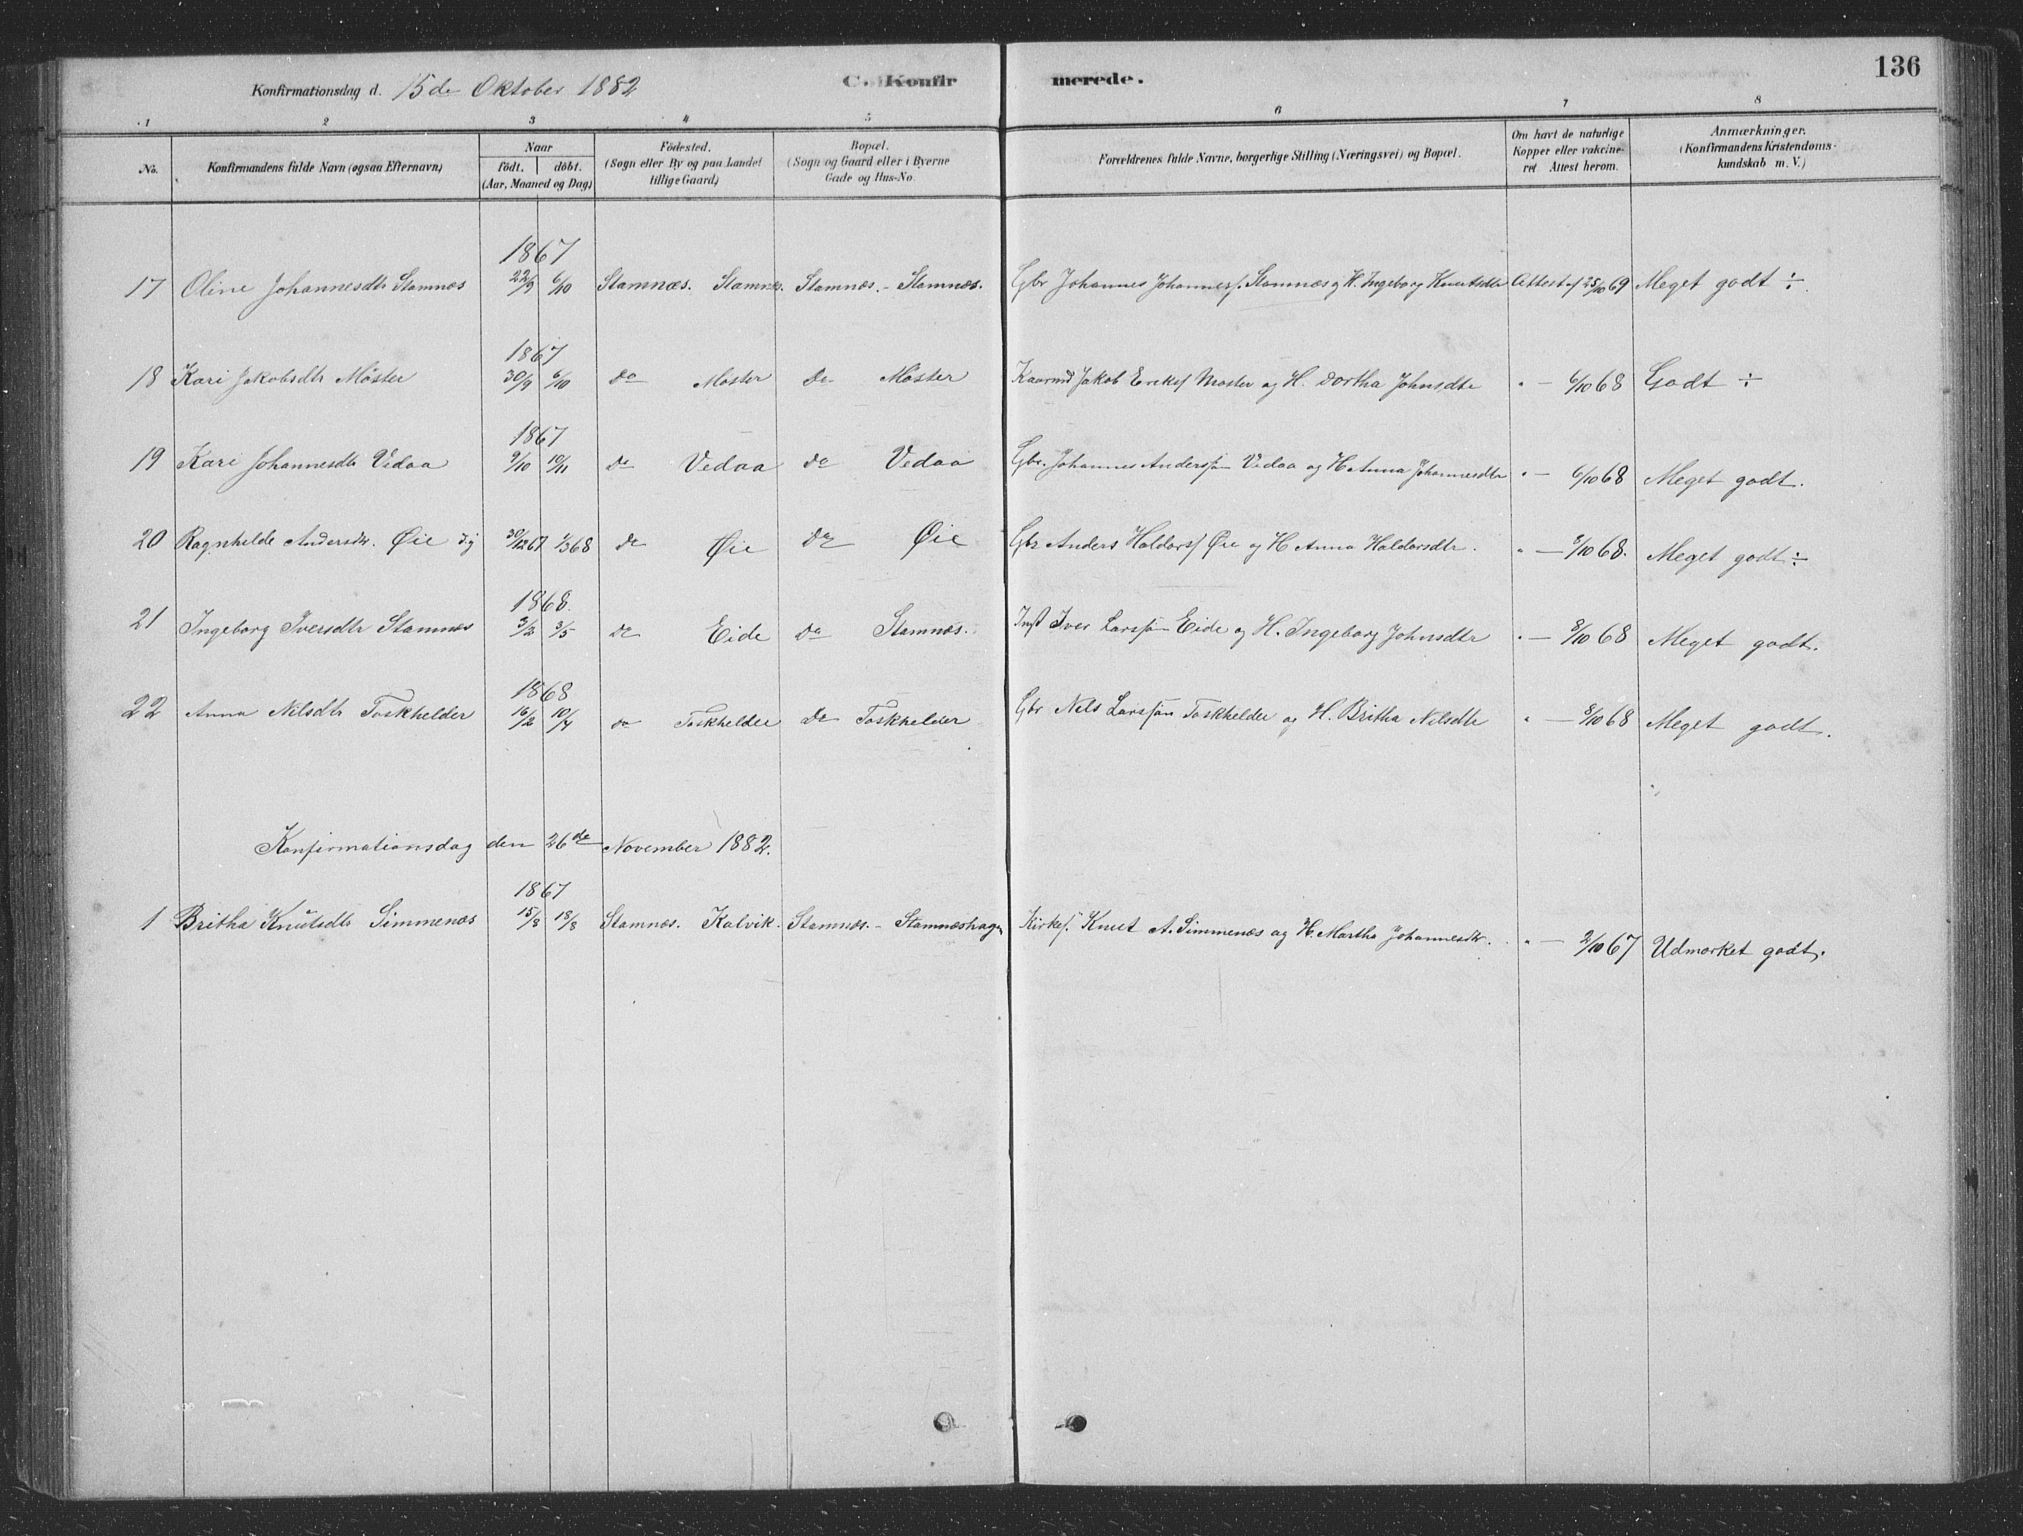 136
Konfirmationsdag d. 15de Oktober 1882 C. Konfir merede.
1 2 3 4 5 6 7 8
No. Konfirmandens fulde Navn (ogsaa Efternavn) Naar født. døbt. (Aar, Maaned og Dag) Fødested. (Sogn eller By og paa Landet tillige Gaard) Bopæl. (Sogn og Gaard eller i Byerne Gade og Hus-No. Forældrenes fulde Navne, borgerlige Stilling (Næringsvei) og Bopæl. Om havt de naturlige Kopper eller vakcineret. Attest herom. Anmærkninger. (Konfirmandens Kristendomskundskab m. V.)
1867
17 Oline Johannesdtr Stamnæs 22/9 6/10 Stamnæs. Stamnæs. Stamnæs. - Stamnæs. Gbr Johannes Johanness. Stamnæs og H. Ingeborg Knutsdtr Attest af 25/10 69 Meget godt ÷
1867
18 Kari Jakobsdtr Møster 30/9 6/10 do Møster do Møster Kaarmd Jakob Eriks Møster og H. Dortha Johnsdtr " — 6/10 68 Godt ÷
1867
19 Kari Johannesdtr Vedaa 9/10 10/11 do Vedaa do Vedaa Gbr. Johannes Anderssøn Vedaa og H Anna Johannesdtr " — 6/10 68 Meget godt.
20 Ragnhilde Andersdtr. Øie 30/12 67 1/3 68 do Øie do Øie Gbr Anders Haldors Øie og H Anna Haldorsdtr. " — 8/10 68. Meget godt ÷
1868.
21 Ingeborg Iversdtr Stamnæs 3/2 3/5 do Eide do Stamnæs. Inst Iver Larssøn Eide og H. Ingeborg Johnsdtr " — 8/10 68 Meget godt.
1868
22 Anna Nilsdtr Toskhelder 16/2 10/4 do Toskhelder do Toskhelder Gbr Nils Larssøn Toskhelder og H. Britha Nilsdtr " — 8/10 68 Meget godt.
Konfirmationsdag den 26de November 1882.
1867
1 Britha Knutsdtr Simmenæs 15/8 18/8 Stamnæs. Kalvik. Stamnæs. - Stamnæshagen Kirkes. Knut A. Simmenæs og H. Martha Johannesdtr. " — 2/10 67 Udmærket godt.